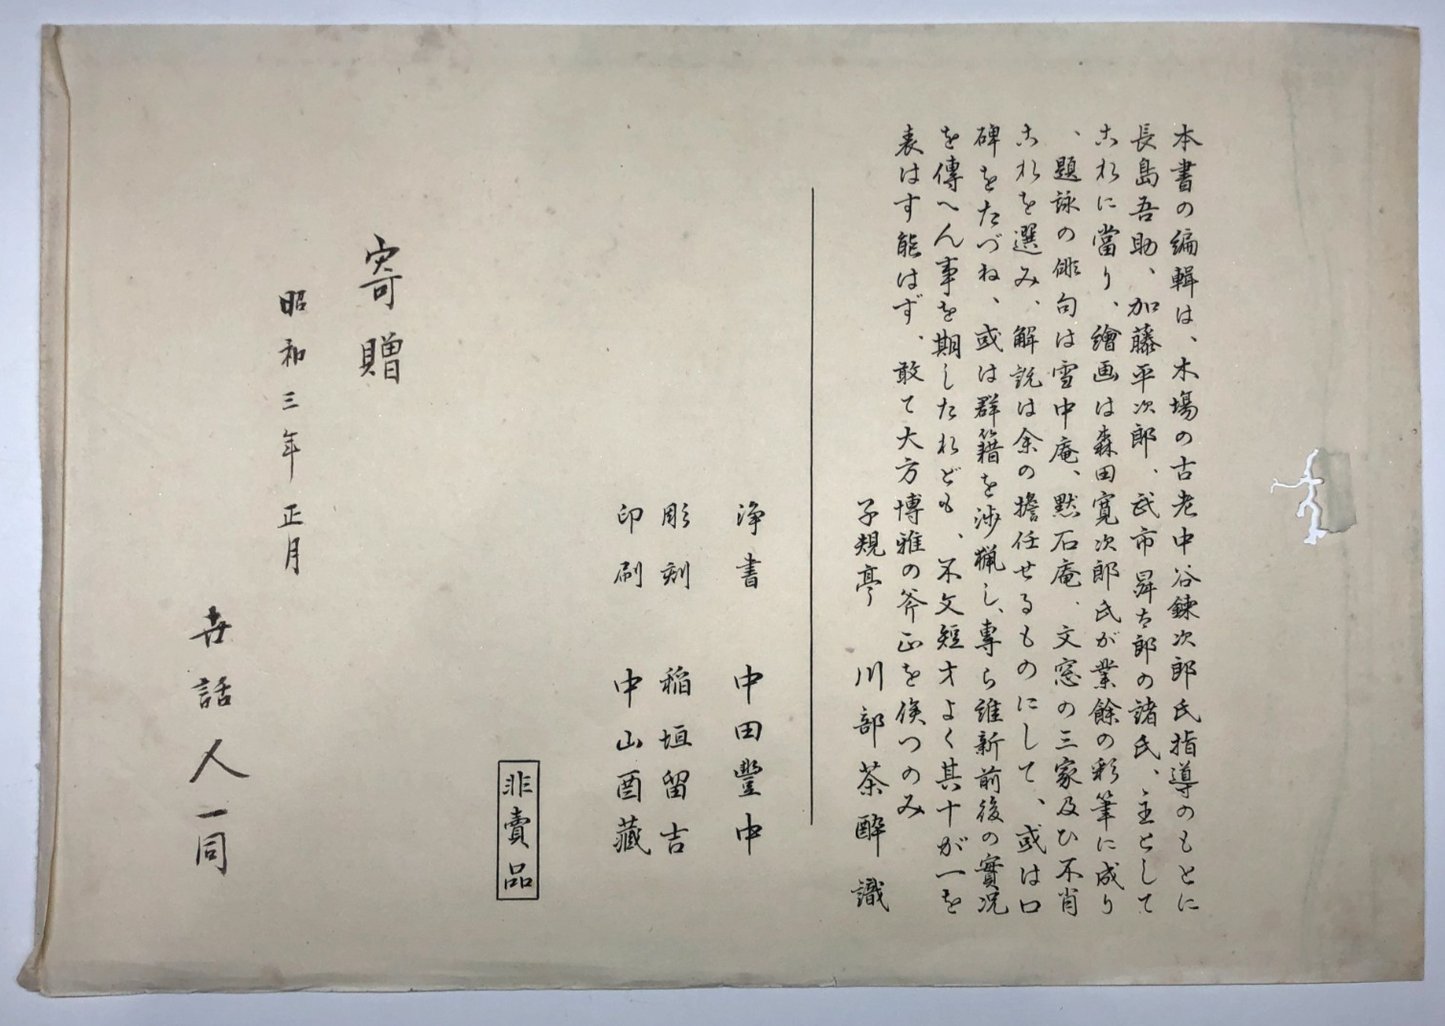 本書の編輯は、木場の古老中谷錬次郎氏指導のもとに
長島吾助、加藤平次郎、武市昇太郎の諸氏、主として
これに當り、繪画は森田寛次郎氏が業餘の彩筆に成り
、題詠の俳句は雪中庵、黙石庵、文窓の三家及ひ不肖
これを選み、解説は余の擔任せるものにして、或は口
碑をたづね、或は群籍を渉猟し、專ら維新前後の實况
を傳へん事を期したれども、不文短才よく其十が一を
表はす能はず、敢て大方博雅の斧正を俟つのみ
子規亭 川部茶酔 識
浄書 中田豐中
彫刻 稲垣留吉
印刷 中山酉藏
非賣品
寄贈
昭和三年正月
世話人一同